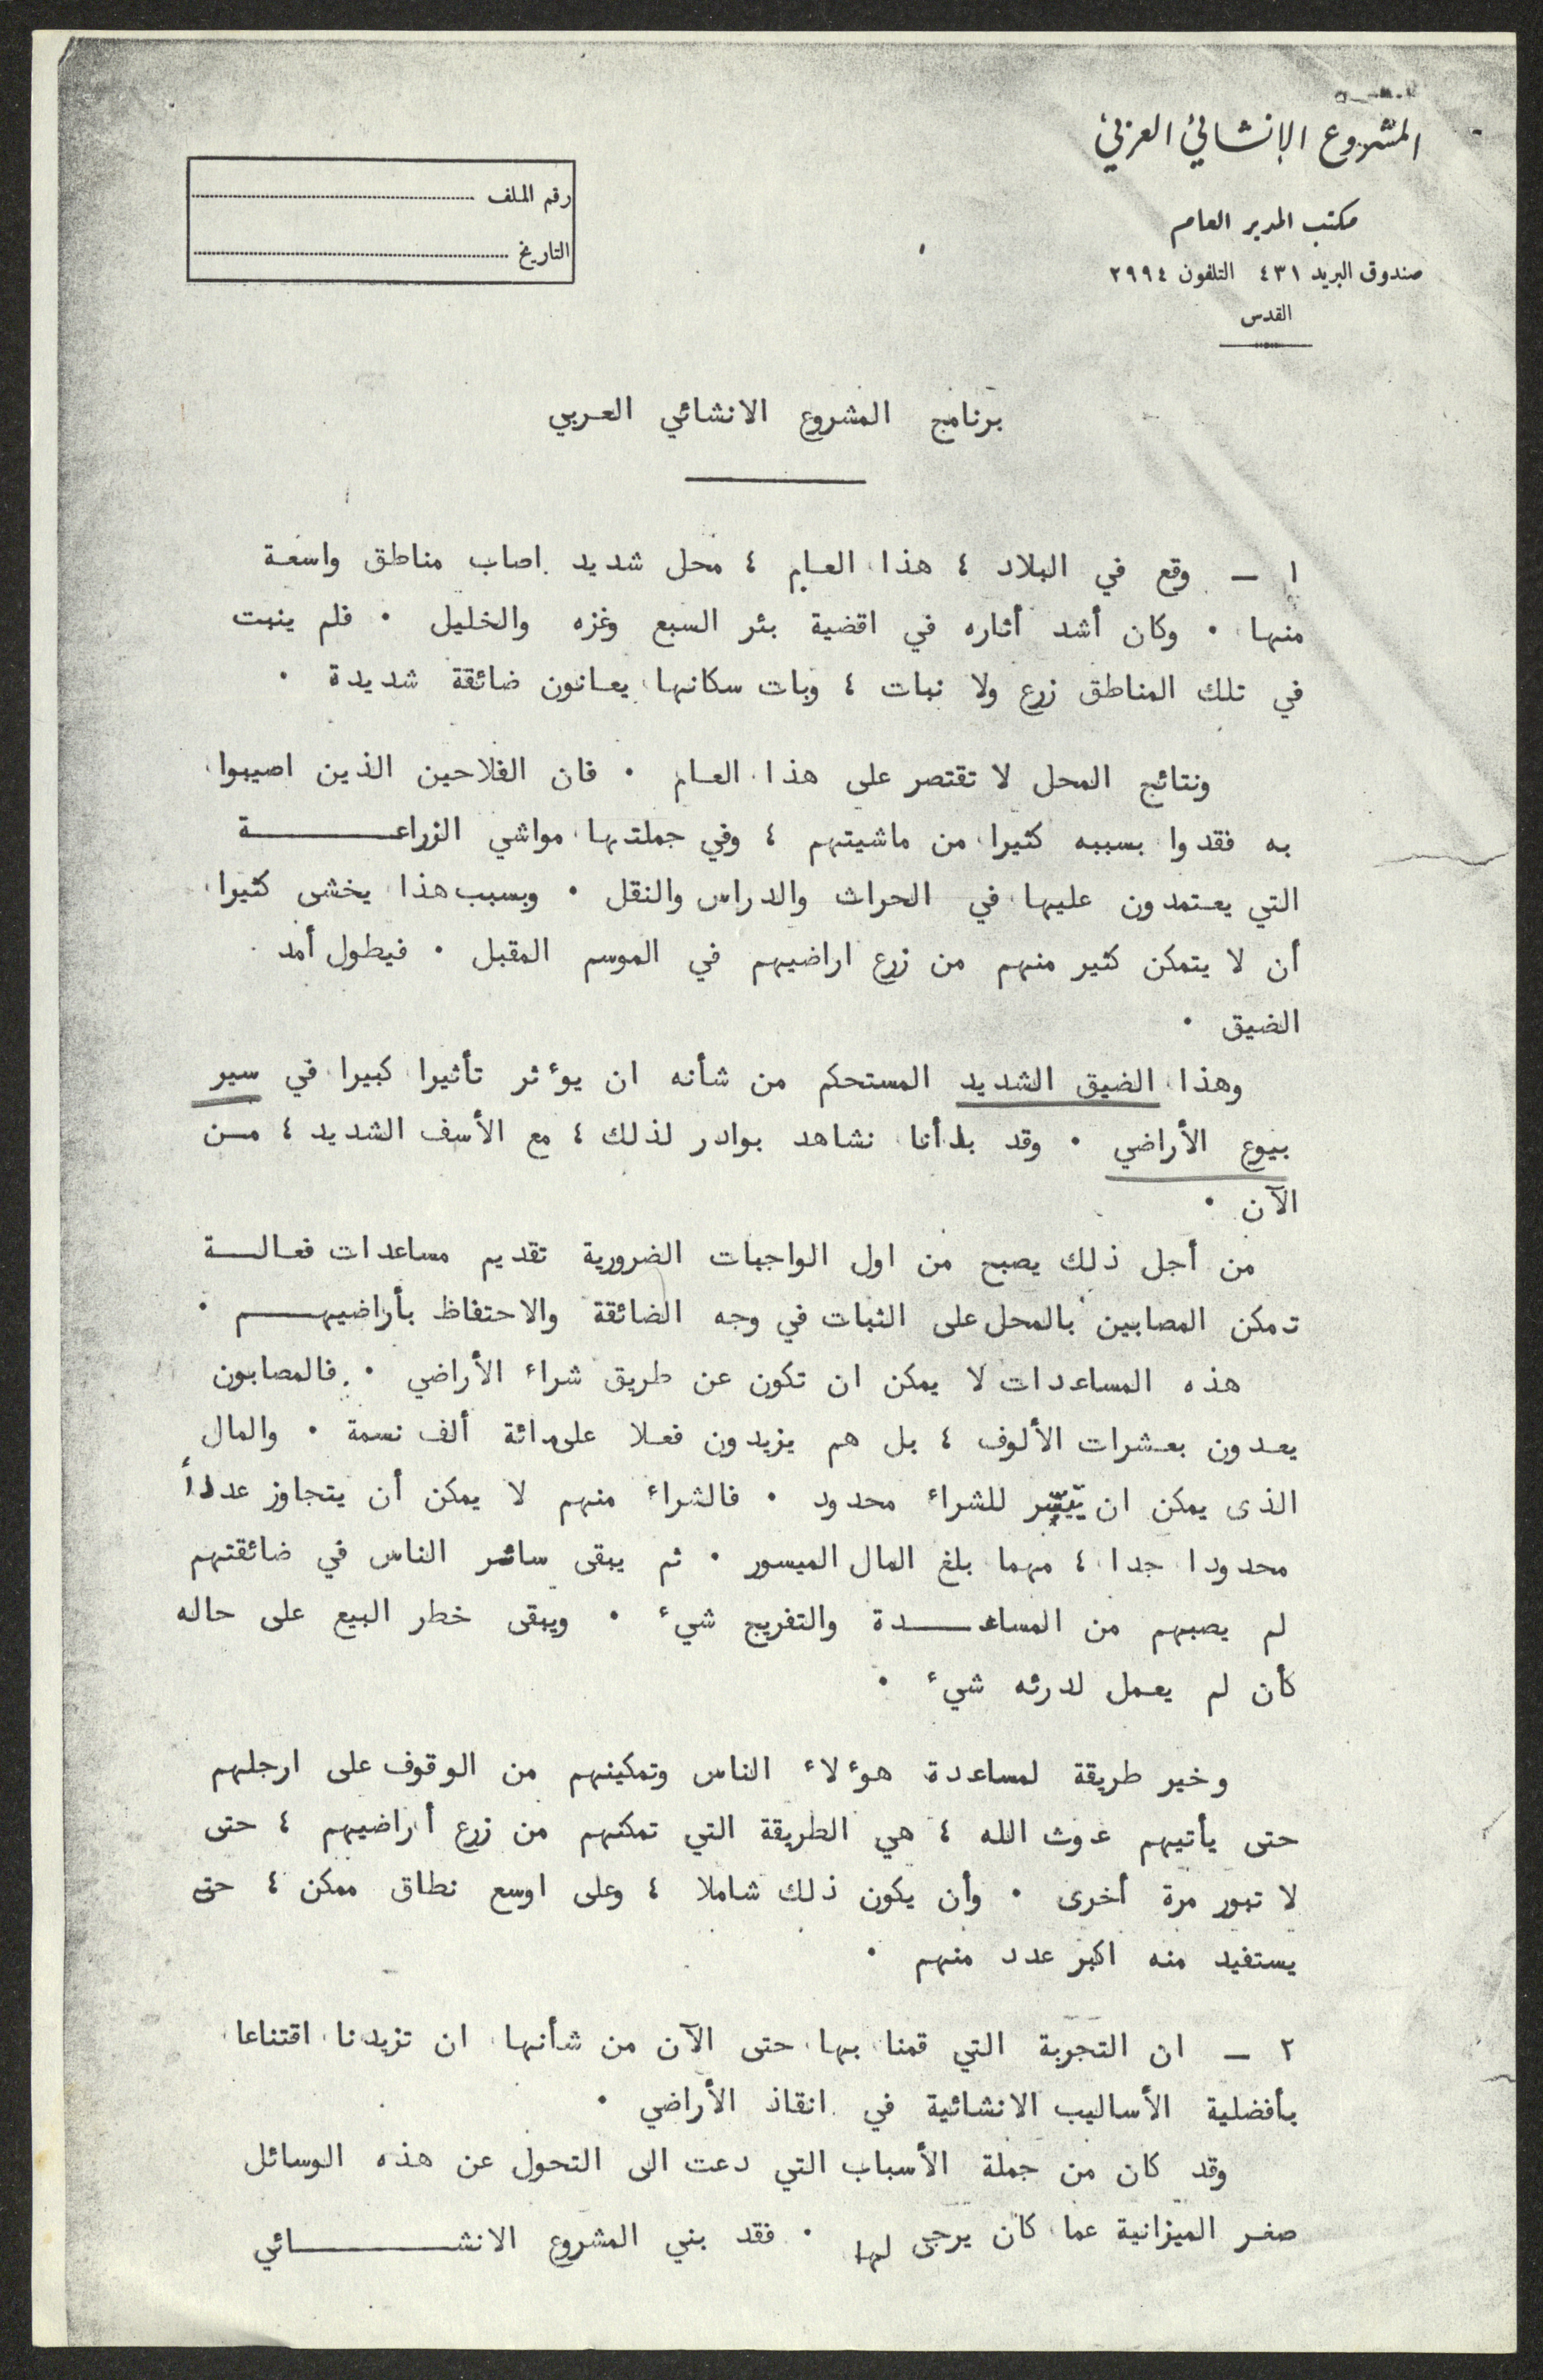 المشروع الإنشائي العربي
مكتب المدير العام
صندوق البريد ٤٣١ التلفون ٢٩٩٤
القدس
رقم الملف
التاريخ
برنامج المشروع الانشائي العربي
١ ـ وقع في البلاد ، هذا العام ، محل شديد اصاب مناطق واسعة
منها . وكان أشد أثاره في اقضية بئر السبع وغزه والخليل . فلم ينبت
في تلك المناطق زرع ولا نبات ، وبات سكانها يعانون ضائقة شديدة .
ونتائج المحل لا تقتصر على هذا العام . فان الفلاحين الذين اصيبوا
به فقدوا بسببه كثيرا من ماشيتهم ، وفي جملتها مواشي الزراعـــــة
التي يعتمدون عليها في الحراث والدراس والنقل . وبسبب هذا يخشى كثيرا
أن لا يتمكن كثير منهم من زرع اراضيهم في الموسم المقبل . فيطول أمد
الضيق .
وهذا الضيق الشديد المستحكم من شأنه ان يوءثر تأثيرا كبيرا في سير
بيوع الأراضي . وقد بدأنا نشاهد بوادر لذلك ، مع الأسف الشديد ، مـن
الآن .
من أجل ذلك يصبح من اول الواجبات الضرورية تقديم مساعدات فعالـــة
تمكن المصابين بالمحل على الثبات في وجه الضائقة والاحتفاظ بأراضيهـــم .
هذه المساعدات لا يمكن ان تكون عن طريق شراء الأراضي . فالمصابون
يعدون بعشرات الألوف ، بل هم يزيدون فعلا على مائة ألف نسمة . والمال
الذى يمكن ان ييسّر للشراء محدود . فالشراء منهم لا يمكن أن يتجاوز عدداً
محدودا جدا ، مهما بلغ المال الميسور . ثم يبقى سائر الناس في ضائقتهم
لم يصبهم من المساعـــدة والتفريج شيء . ويبقى خطر البيع على حاله
كأن لم يعمل لدرئه شيء .
وخير طريقة لمساعدة هوءلاء الناس وتمكينهم من الوقوف على ارجلهم
حتى يأتيهم غوث الله ، هي الطريقة التي تمكنهم من زرع أراضيهم ، حتى
لا تبور مرة أخرى . وأن يكون ذلك شاملا ، وعلى اوسع نطاق ممكن ، حتى
يستفيد منه اكبر عدد منهم .
٢ ـ ان التجربة التي قمنا بها حتى الآن من شأنها ان تزيدنا اقتناعا
بأفضلية الأساليب الانشائية في انقاذ الأراضي .
وقد كان من جملة الأسباب التي دعت الى التحول عن هذه الوسائل
صغر الميزانية عما كان يرجى لها . فقد بني المشروع الانشـــــــائي